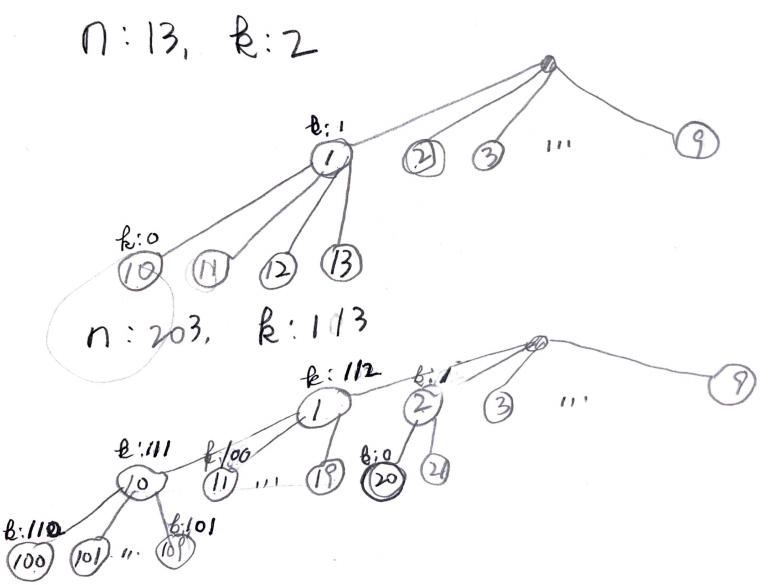 n:13, k:2
k:1
1 2 3 ... 9
k:0
10 11 12 13
n:203, k:113
k:112 k:1
1 2 3 ... 9
k:111 k:100 k:0
10 11 ... 19 20 21
k:110 k:101
100 101 ... 109